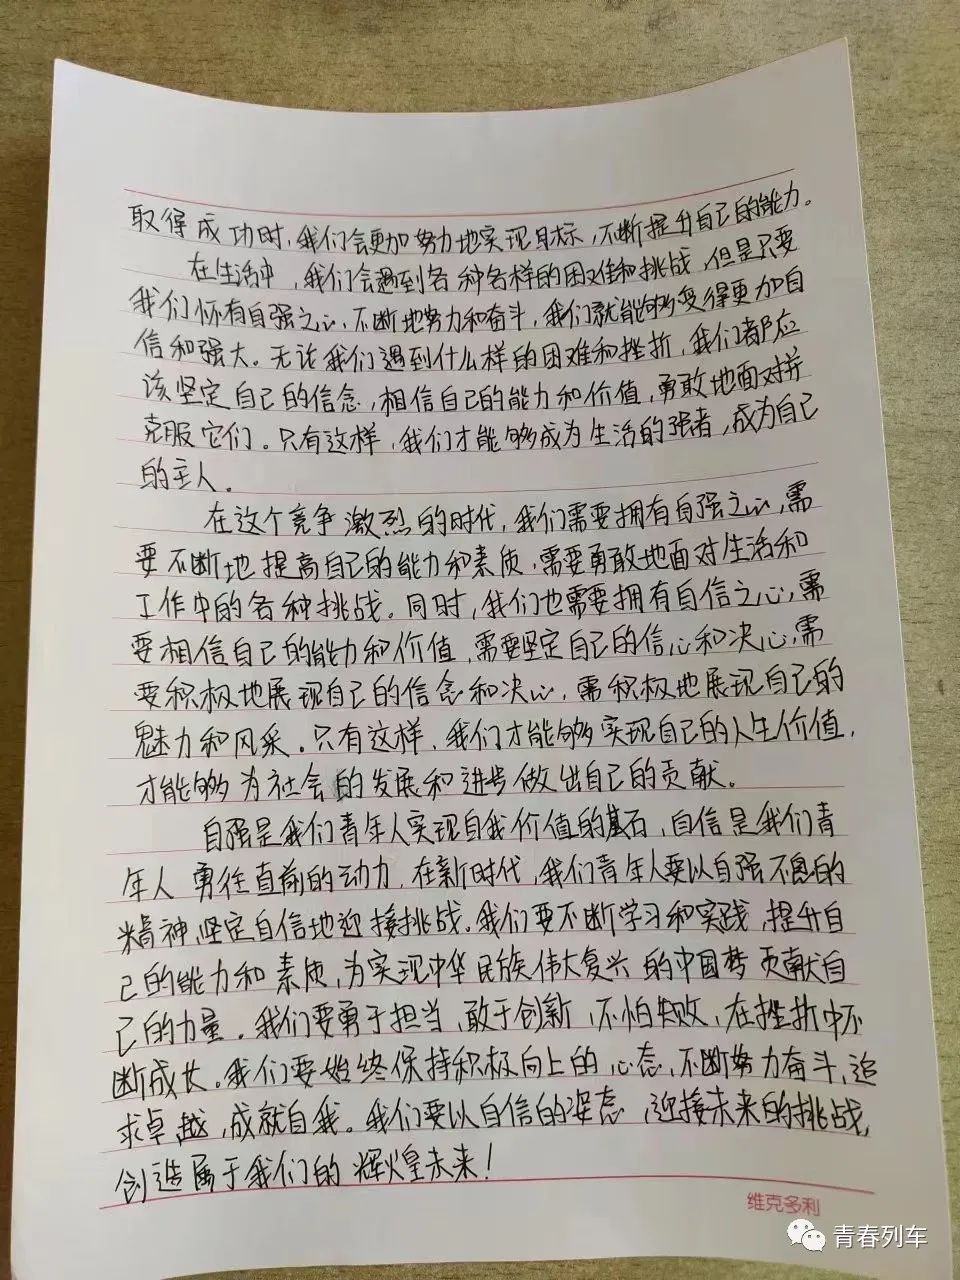 取得成功时，我们会更加努力地实现目标，不断提升自己的能力。
在生活中，我们会遇到各种各样的困难和挑战，但是只要
我们怀有自强之心，不断地努力和奋斗，我们就能够变得更加自
信和强大。无论我们遇到什么样的困难和挫折，我们都应
该坚定自己的信念，相信自己的能力和价值，勇敢地面对拼
克服它们。只有这样，我们才能够成为生活的强者，成为自己
的主人。
在这个竞争激烈的时代，我们需要拥有自强之心，需
要不断地提高自己的能力和素质，需要勇敢地面对生活和
工作中的各种挑战。同时，我们也需要拥有自信之心，需
要相信自己的能力和价值，需要坚定自己的信心和决心，需
要积极地展现自己的信念和决心，需积极地展现自己的
魅力和风采。只有这样，我们才能够实现自己的人生价值，
才能够为社会的发展和进步做出自己的贡献。
自强是我们青年人实现自我价值的基石，自信是我们青
年人勇往直前的动力，在新时代，我们青年人要以自强不息的
精神，坚定自信地迎接挑战。我们要不断学习和实践，提升自
己的能力和素质，为实现中华民族伟大复兴的中国梦贡献自
己的力量。我们要勇于担当，敢于创新，不怕失败，在挫折中不
断成长。我们要始终保持积极向上的心态，不断努力奋斗，追
求卓越，成就自我。我们要以自信的姿态，迎接未来的挑战，
创造属于我们的辉煌未来！
维克多利
青春列车